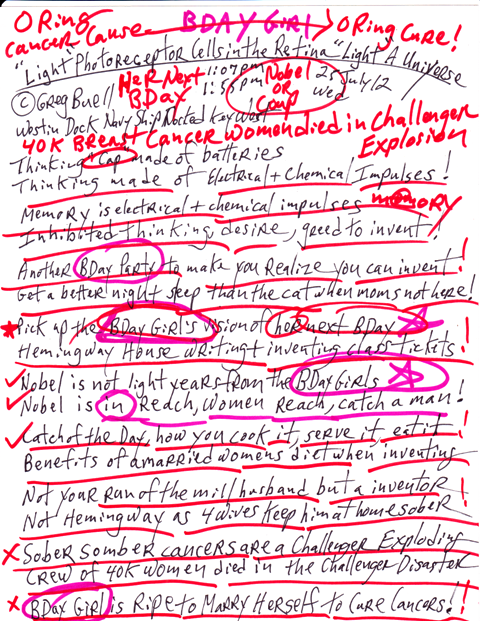 O Ring BDAY GIRL O Ring Cure!
cancer Cause
"Light Photoreceptor Cells in the Retina" Light A Universe
Her Next 1:07pm Nobel 25 July 12
© Greg Buell BDay 1:55pm or Coup Wed
Westin Dock Navy Ship Nocted Key West
40K Breast Cancer Women died in Challenger
Explosion
Thinking "Cap" made of batteries
Thinking made of Electrical + Chemical Impulses!
Memory is electrical + chemical impulses memory
Inhibited thinking, desire, greed to invent!
Another BDay Party to make you Realize you can invent!
Get a better night sleep than the cat when moms not here!
Pick up the BDay Girl's vision of her next BDay
Hemingway House writing + inventing class tickets!
Nobel is not light years from the BDay Girls
Nobel is in Reach, Women Reach, catch a man!
Catch of the Day, how you cook it, serve it, eat it!
Benefits of a married womens diet when inventing
Not your run of the mill husband but a inventor!
Not Hemingway as 4 wives keep him at home sober!
Sober somber cancers are a Challenger Exploding
Crew of 40K women died in the Challenger Disaster
BDay Girl is Ripe to Marry Herself to Cure Cancers!!